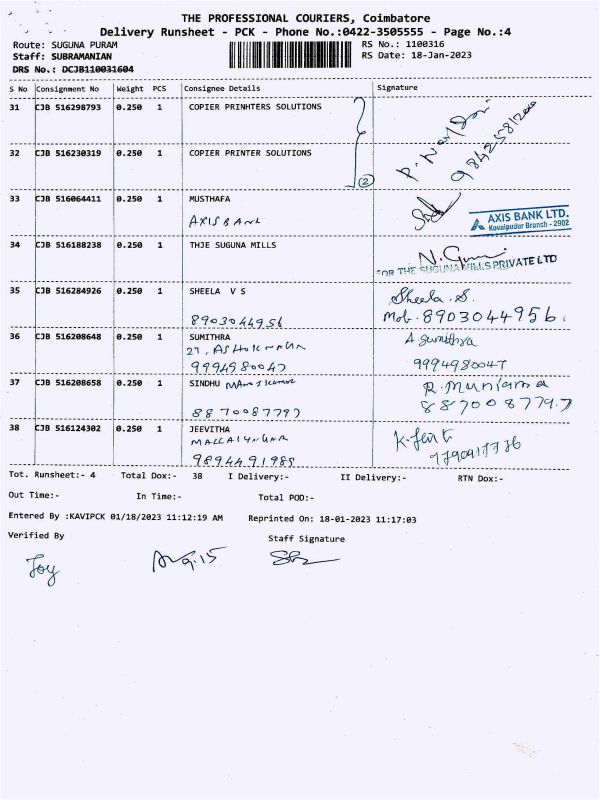 THE PROFESSIONAL COURIERS, Coimbatore
Delivery Runsheet - PCK - Phone No.:0422-3505555 - Page No.:4
Route: SUGUNA PURAM RS No.: 1100316
Staff: SUBRAMANIAN RS Date: 18-Jan-2023
DRS No.: DCJB110031604
S No Consignment No Weight PCS Consignee Details Signature
31 CJB 516298793 0.250 1 COPIER PRINHTERS SOLUTIONS
9842581200
32 CJB 516230319 0.250 1 COPIER PRINTER SOLUTIONS
2
33 CJB 516064411 0.250 1 MUSTHAFA
AXIS BANK
AXIS BANK LTD.
Kovaipudur Branch - 2902
34 CJB 516188238 0.250 1 THJE SUGUNA MILLS
FOR THE SUGUNA MILLS PRIVATE LTD
35 CJB 516284926 0.250 1 SHEELA V S Sheela. S.
8903044956 Mob. 8903044956.
36 CJB 516208648 0.250 1 SUMITHRA A Sumithra
27, ASHOK NAGAR
9994980047 9994980047
37 CJB 516208658 0.250 1 SINDHU
8870087797 8870087797
38 CJB 516124302 0.250 1 JEEVITHA
9894491985
Tot. Runsheet:- 4 Total Dox:- 38 I Delivery:- II Delivery:- RTN Dox:-
Out Time:- In Time:- Total POD:-
Entered By :KAVIPCK 01/18/2023 11:12:19 AM Reprinted On: 18-01-2023 11:17:03
Verified By Staff Signature
Joy